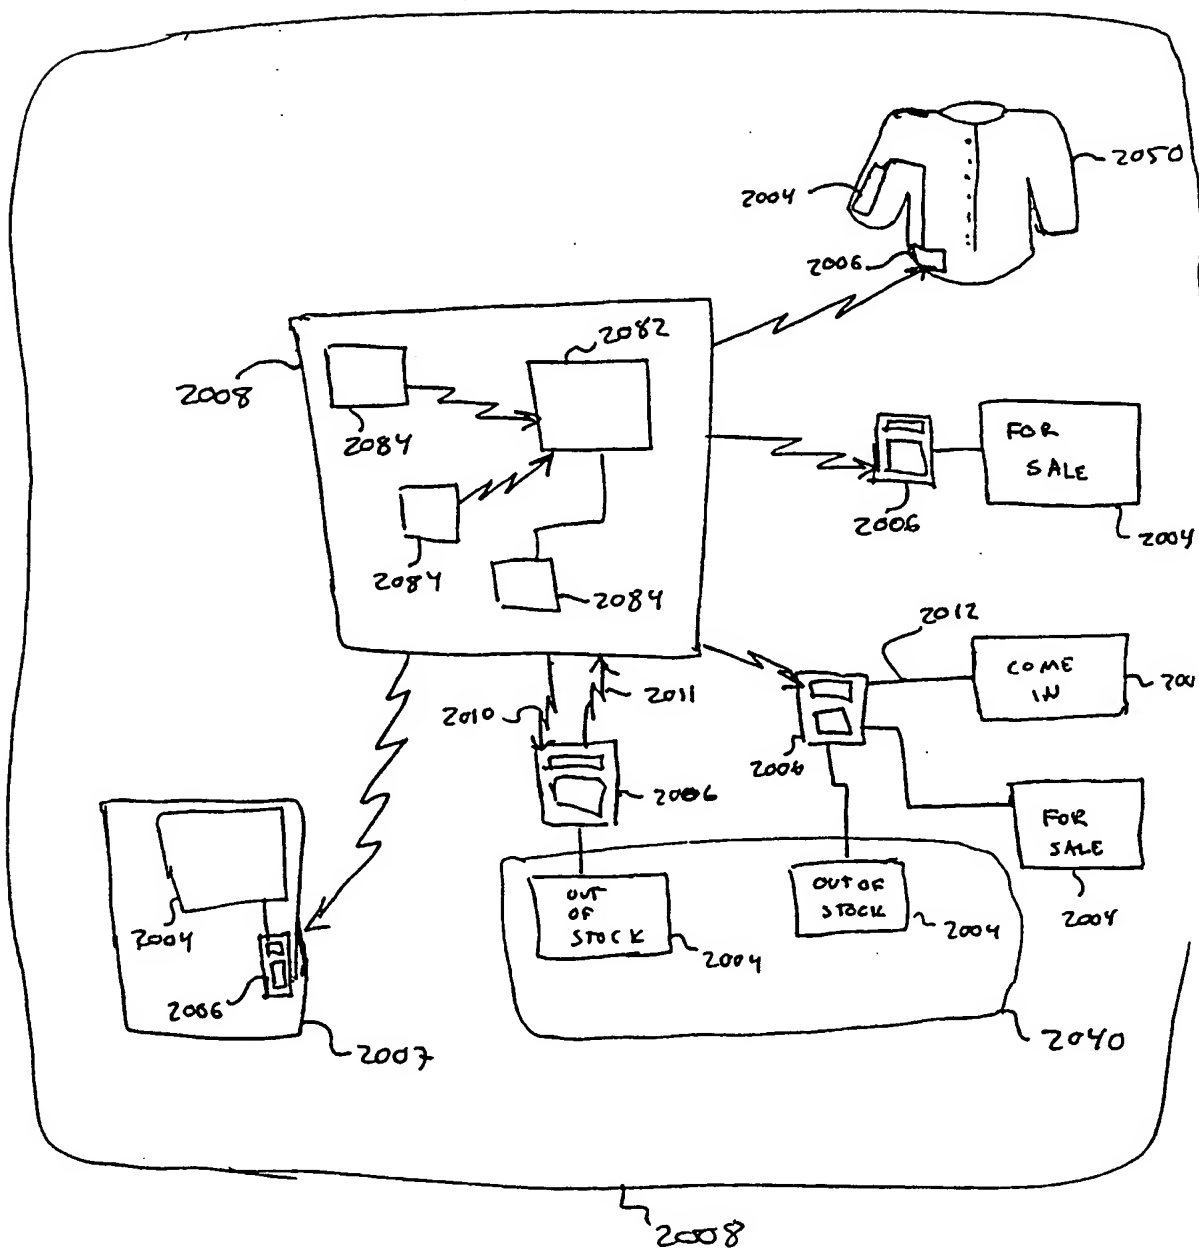 2050
2004
2006
2082
2008
2084
FOR
SALE
2006
2004
2084
2084
2012
COME
IN
200
2010
2011
2006
2006
FOR
SALE
2004
OUT
OF
STOCK
2004
OUT OF
STOCK
2004
2004
2006
2007
2040
2008